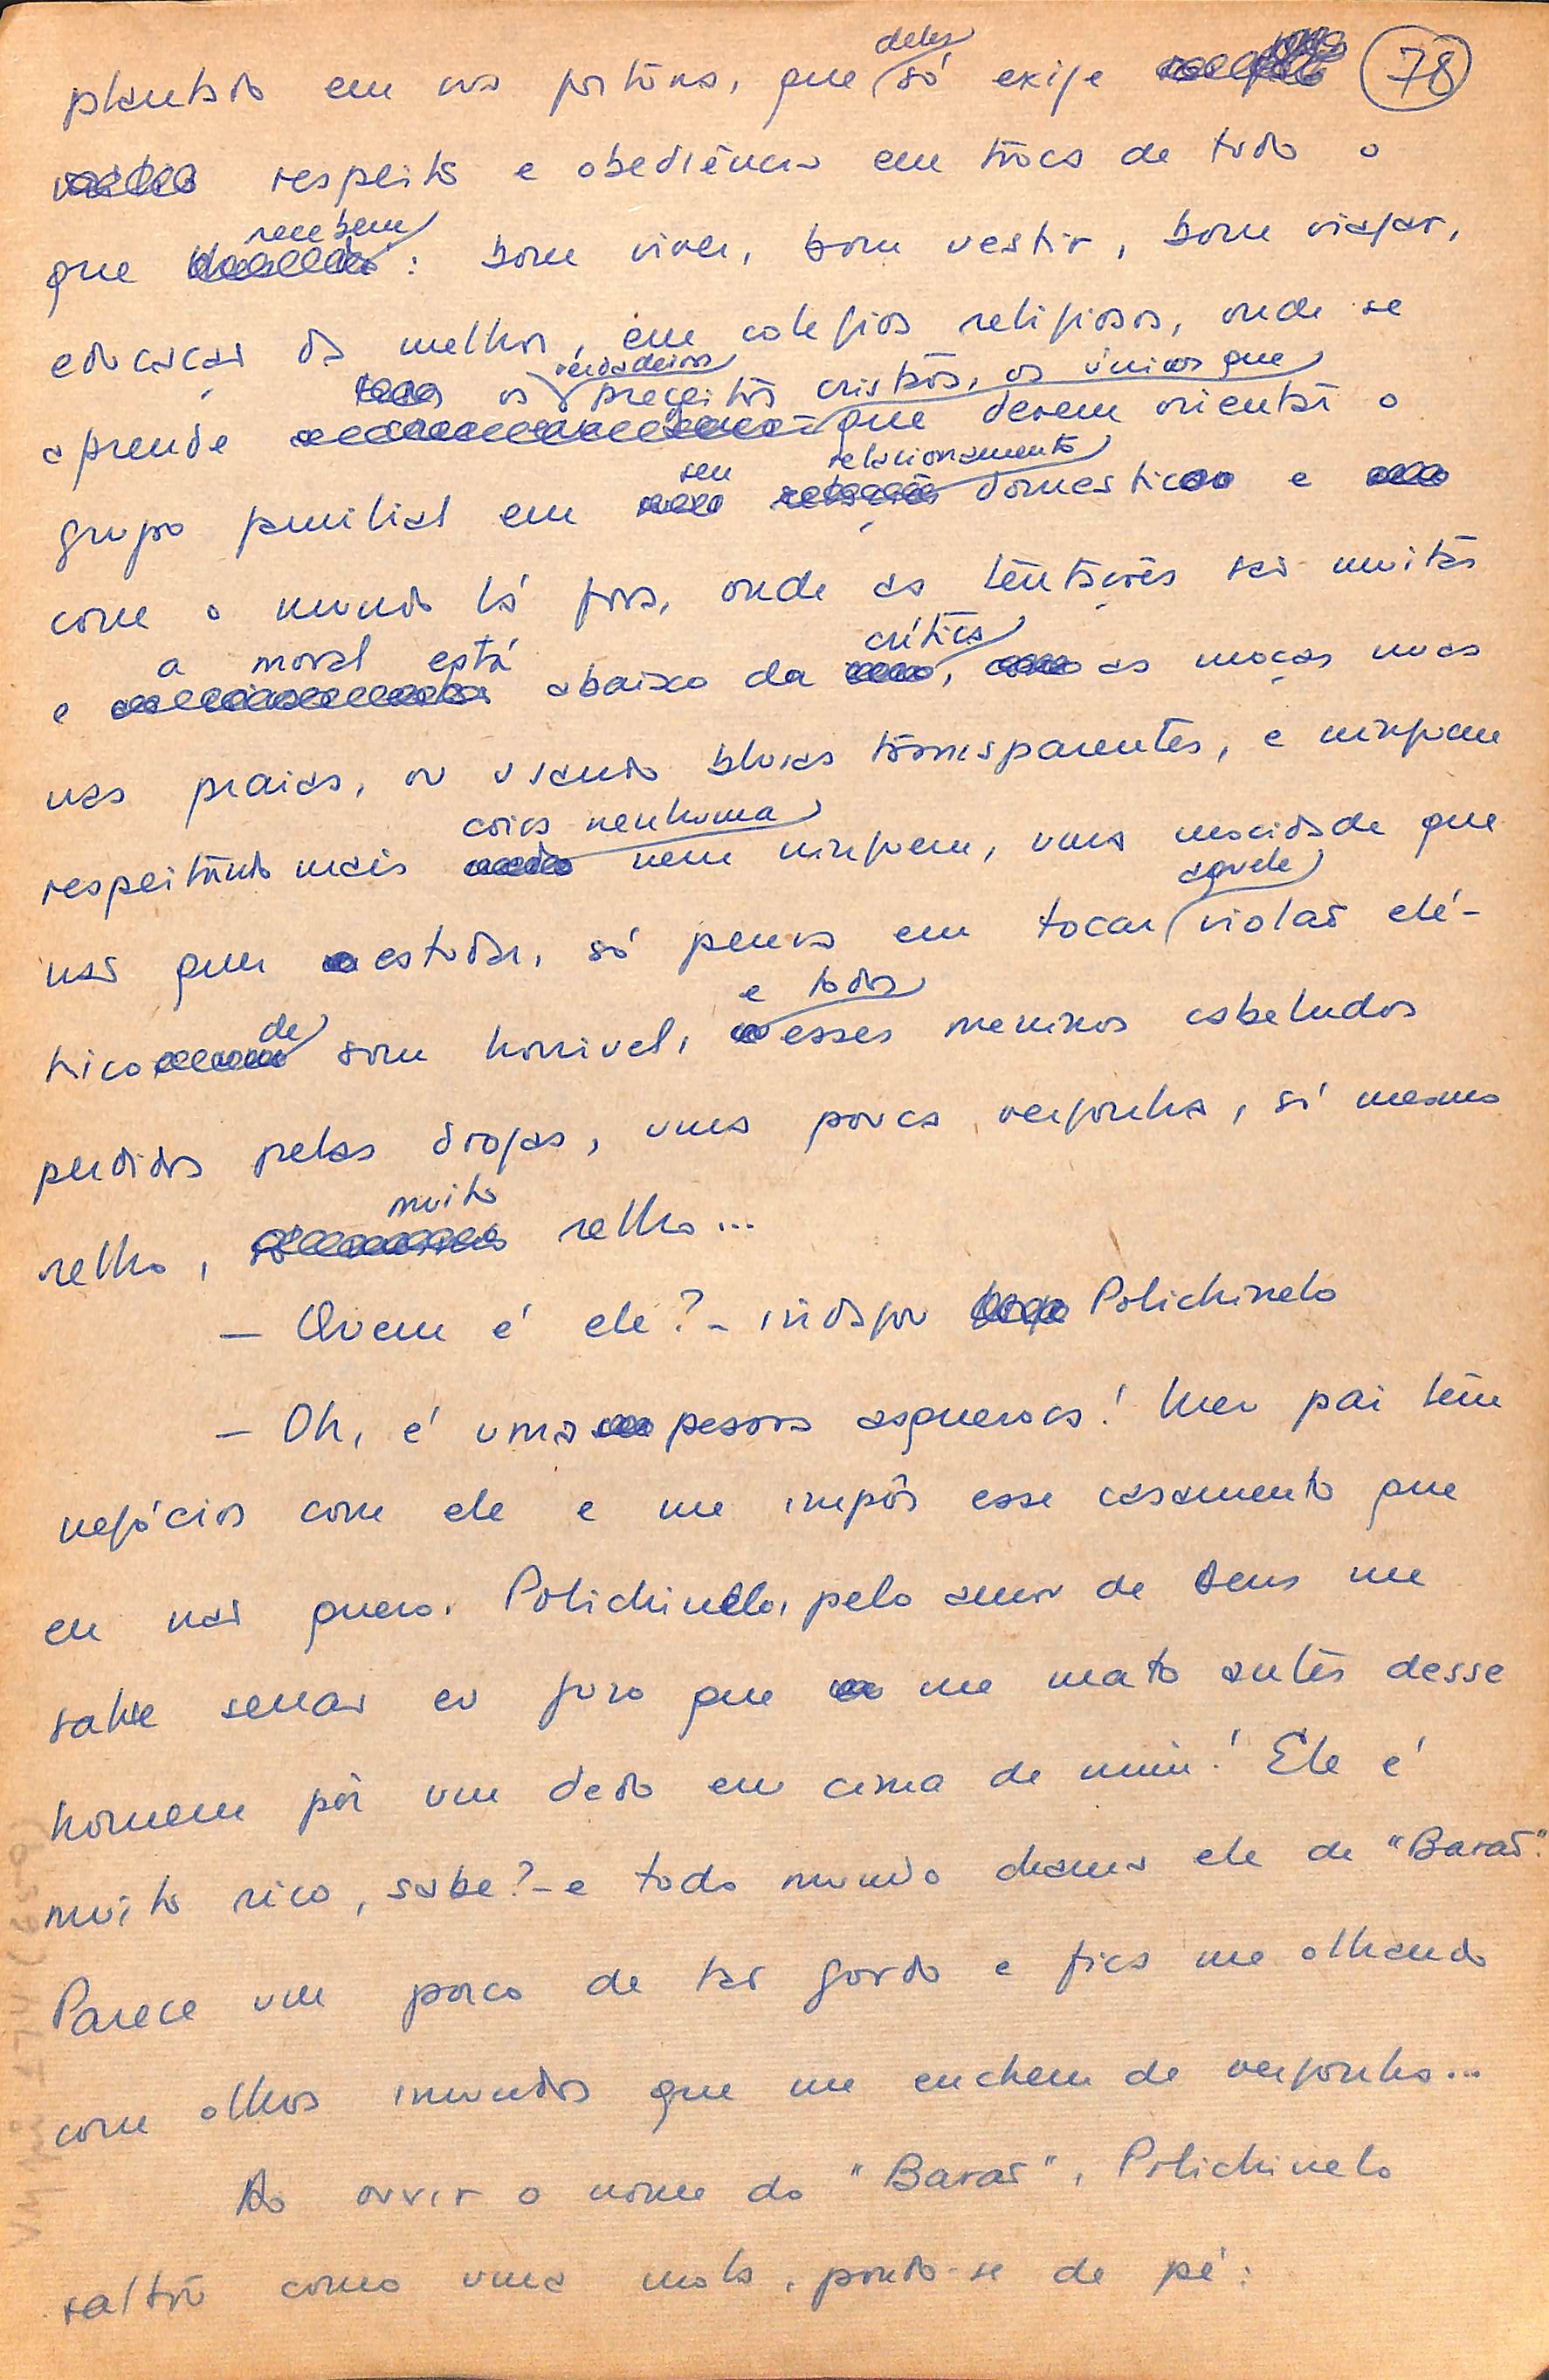 78
plantado em uns portões, que deles só exige
respeito e obediência em troca de todo o
que recebem: bom viver, bom vestir, bom viajar,
educação da melhor, em colégios religiosos, onde se
aprende os verdadeiros preceitos cristãos, os únicos que que devem orientar o
grupo familial em seu relacionamento domestico e
com o mundo lá fora, onde as tentações são muitas
e a moral está abaixo da crítica, as moças nuas
nas praias, ou usando blusas transparentes, e ninguem
respeitando mais coisa nenhuma nem ninguem, uma mocidade que
não quer estudar, só pensa em tocar aquele violão elé-
trico de som horrivel, e todos esses meninos cabeludos
perdidos pelas drogas, uma pouca vergonha, só mesmo
relho, muito relho...
— Quem é ele? - indagou Polichinelo
— Oh, é uma pessoa asquerosa! Meu pai tem
negócios com ele e me impôs esse casamento que
eu não quero. Polichinelo, pelo amor de Deus me
salve senão eu juro que me mato antes desse
homem pôr um dedo em cima de mim! Ele é
muito rico, sabe? - e todo mundo chama ele de "Barão".
Parece um porco de tão gordo e fica me olhando
com olhos imundos que me enchem de vergonha...
Ao ouvir o nome do "Barão", Polichinelo
saltou como uma mola, pondo-se de pé: